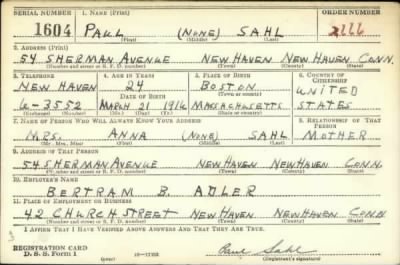 SERIAL NUMBER 1. NAME (Print) ORDER NUMBER
1604 PAUL (NONE) SAHL
(First) (Middle) (Last)
2. ADDRESS (Print)
54 SHERMAN AVENUE NEW HAVEN NEW HAVEN CONN.
(Number and street or R. F. D. number) (Town) (County) (State)
3. TELEPHONE 4. AGE IN YEARS 5. PLACE OF BIRTH 6. COUNTRY OF CITIZENSHIP
NEW HAVEN 24 BOSTON UNITED
DATE OF BIRTH (Town or county)
6-3552 MARCH 21 1916 MASSACHUSETTS STATES
(Exchange) (Number) (Mo.) (Day) (Yr.) (State or country)
7. NAME OF PERSON WHO WILL ALWAYS KNOW YOUR ADDRESS 8. RELATIONSHIP OF THAT PERSON
MRS. ANNA (NONE) SAHL MOTHER
(Mr., Mrs., Miss) (First) (Middle) (Last)
9. ADDRESS OF THAT PERSON
54 SHERMAN AVENUE NEW HAVEN NEW HAVEN CONN.
(Number and street or R. F. D. number) (Town) (County) (State)
10. EMPLOYER'S NAME
BERTRAM B. ADLER
11. PLACE OF EMPLOYMENT OR BUSINESS
42 CHURCH STREET NEW HAVEN NEW HAVEN CONN
(Number and street or R. F. D. number) (Town) (County) (State)
I AFFIRM THAT I HAVE VERIFIED ABOVE ANSWERS AND THAT THEY ARE TRUE.
REGISTRATION CARD
D. S. S. Form 1 Paul Sahl
(Registrant's signature)